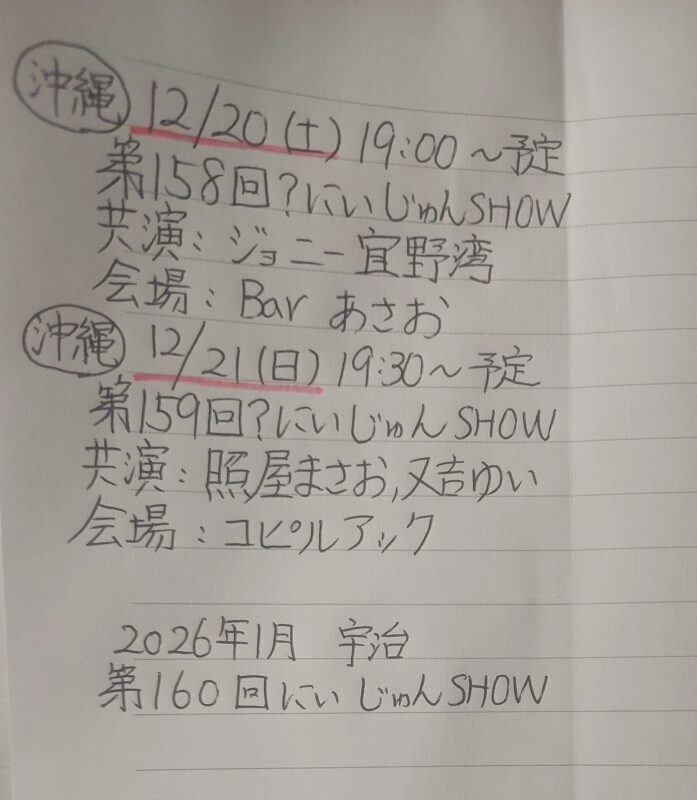 沖縄 12/20(土) 19:00~予定
第158回?にいじゅんSHOW
共演:ジョニー宜野湾
会場:Bar あさお
沖縄 12/21(日) 19:30~予定
第159回?にいじゅんSHOW
共演:照屋まさお,又吉ゆい
会場:コピルアック
2026年1月 宇治
第160回にいじゅんSHOW